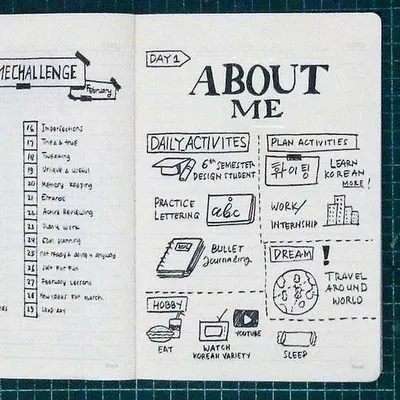 MECHALLENGE
February
16 Imperfections
17 Tried & true
18 Tweaking
19 Unique & useful
20 Memory keeping
21 Errands
22 Actively Reviewing
23 Digital work
24 Goal planning
25 not ready & doing it anyway
26 Just for fun
27 February lessons
28 New ideas for March
29 Leap day
DAY 1
ABOUT
ME
DAILY ACTIVITES
6th SEMESTER
DESIGN STUDENT
PRACTICE
LETTERING
abc
BULLET
Journaling
PLAN ACTIVITIES
화이팅
LEARN
KOREAN
MORE!
WORK/
INTERNSHIP
DREAM !
TRAVEL
AROUND
WORLD
HOBBY
EAT
WATCH
KOREAN VARIETY
YOUTUBE
SLEEP